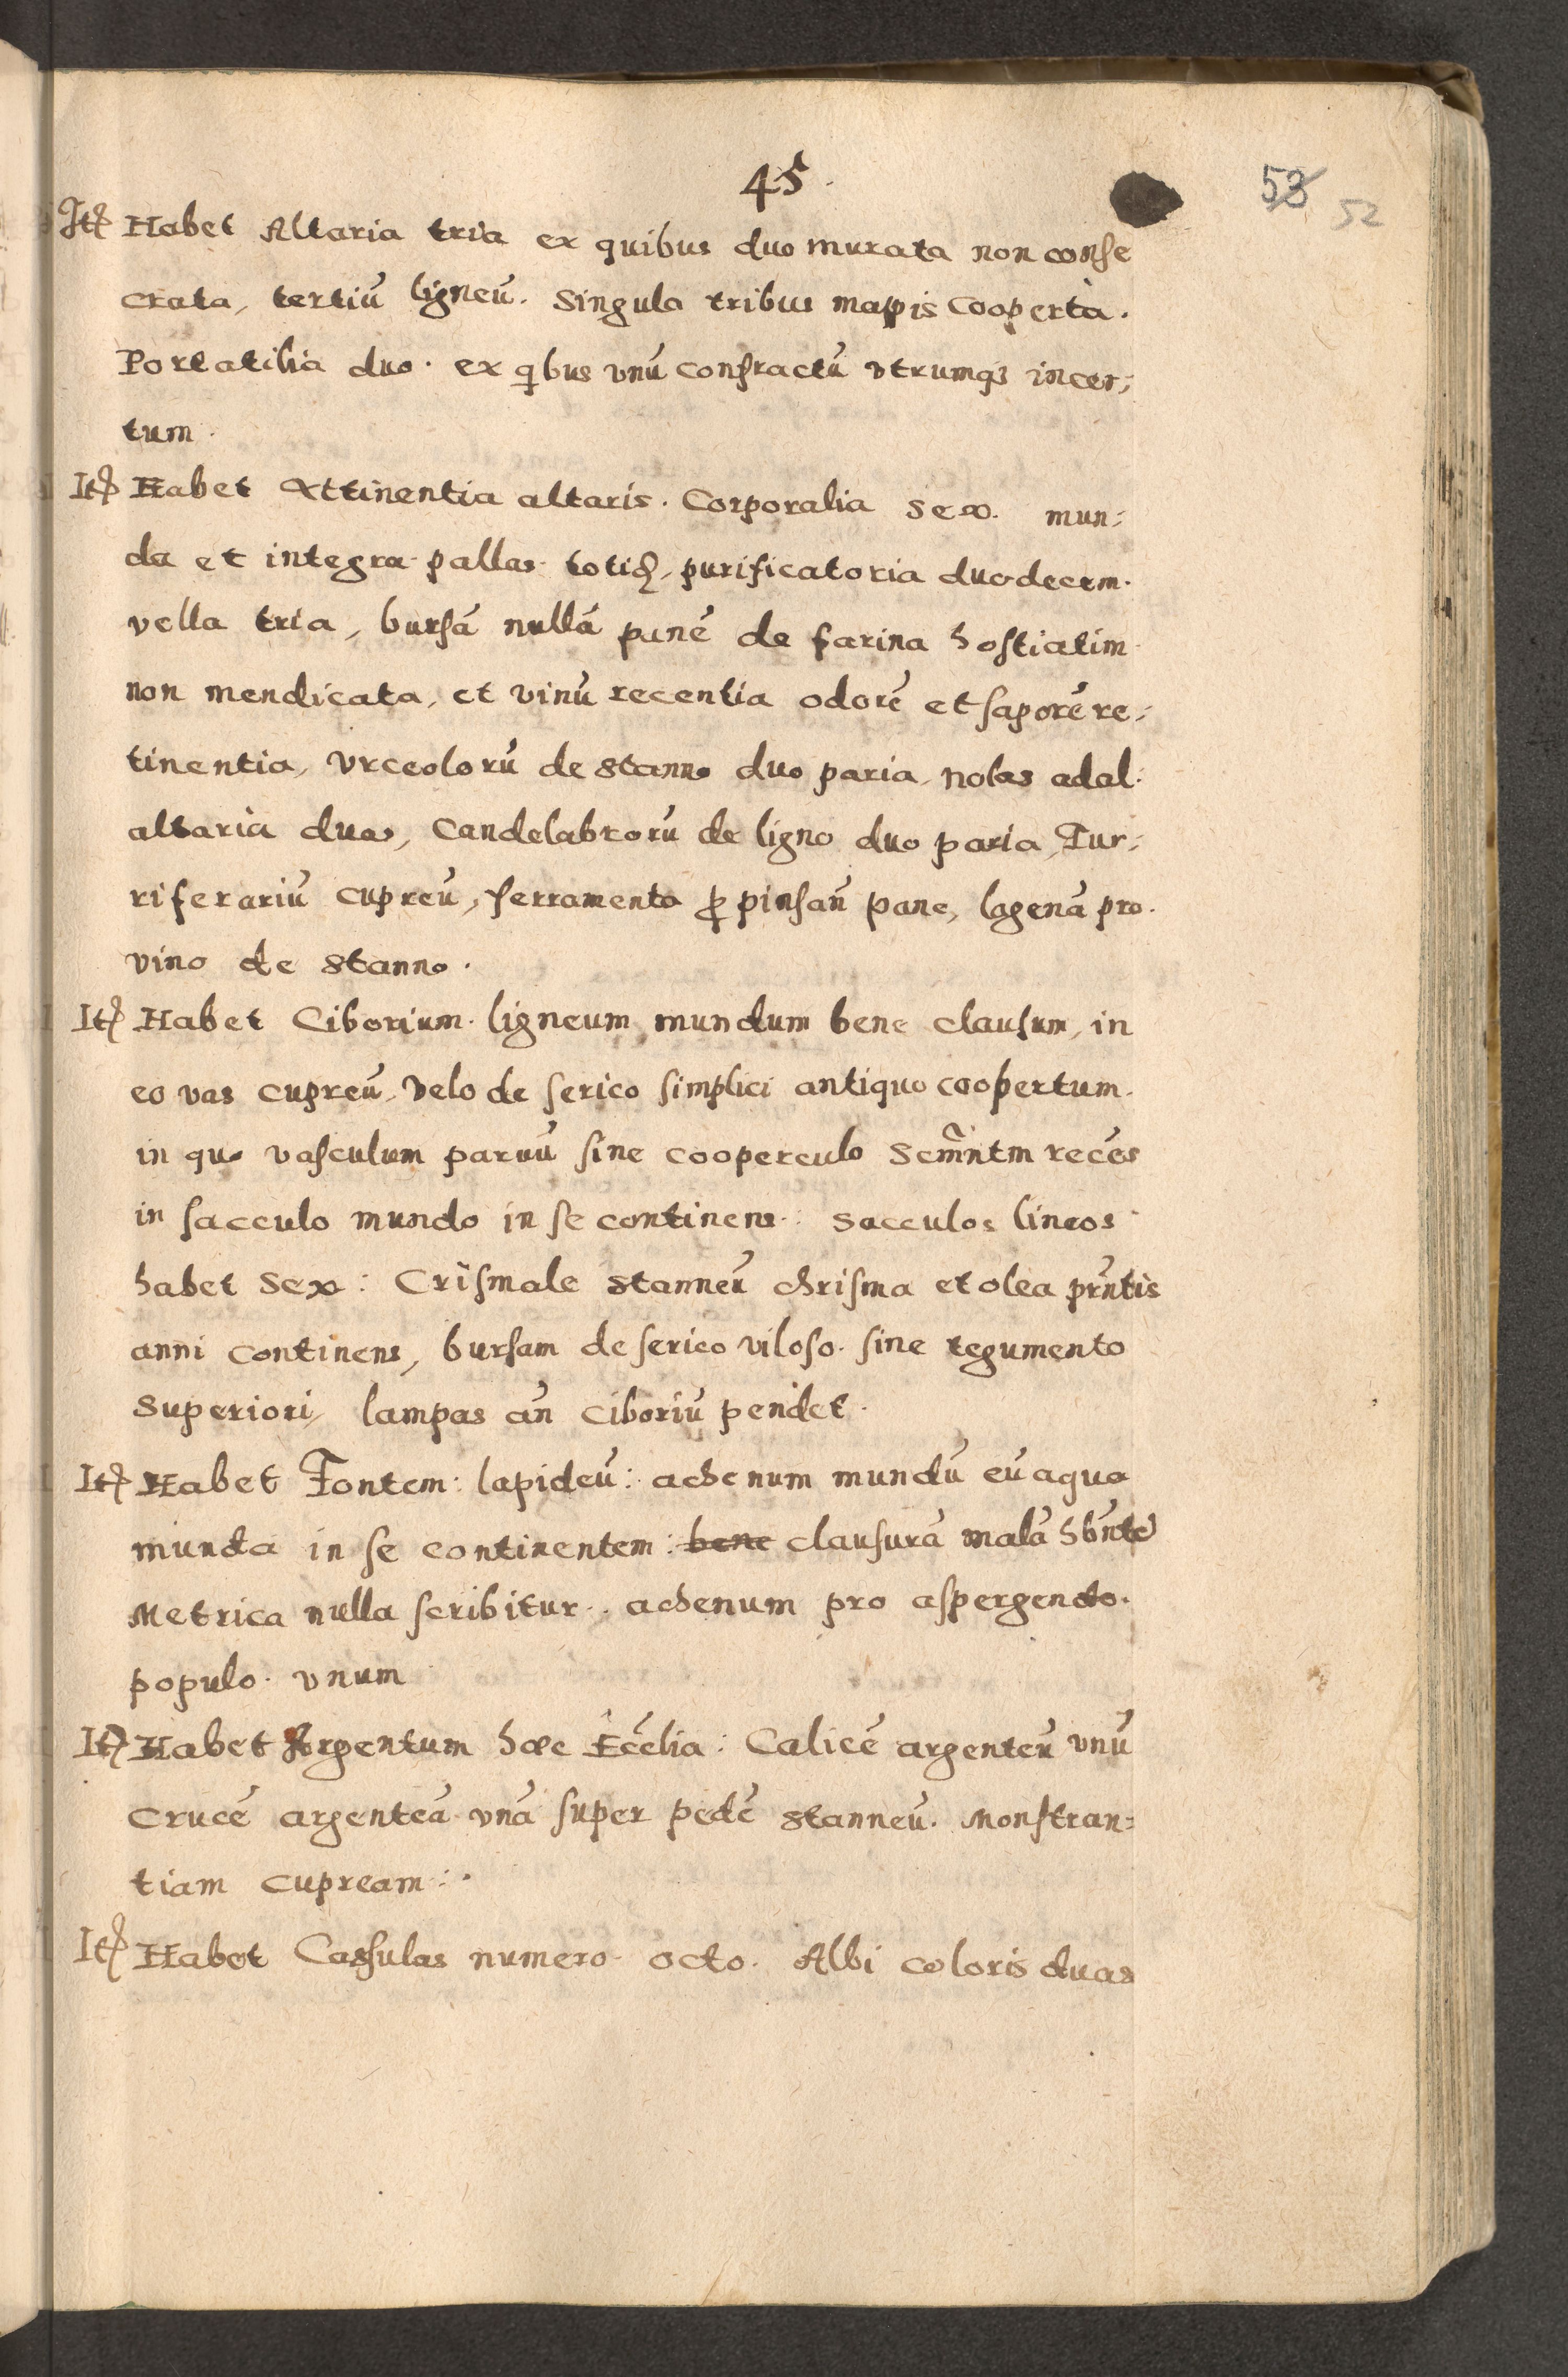 45.
53 52
Itē Habet Altaria tria ex quibus duo murata non conse
crata, tertiū ligneū. Singula tribus mappis Cooperta.
Portatilia duo. ex qibus vnū confractū vtrumqȝ incer;
tum.
Itē Habet Attinentia altaris. Corporalia sex. mun;
da et integra pallas totiđ, purificatoria duodecem.
vella tria, bursā nullā panē de farina hostiatim
non mendicata, et vinū recentia odorē et saporē re;
tinentia, Vrceolorū de stanno duo paria, nolas adal.
altaria duas, Candelabrorū de ligno duo paria, Tur;
riferariū cupreū, ferramenta ꝓ pinsan̄ pane, lagenā pro.
vino de stanno.
Itē Habet Ciborium ligneum mundum bene clausum, in
eo vas cupreū, Velo de serico simplici antiquo coopertum.
in quo vasculum paruū sine cooperculo Scm̄ntm recēs
in sacculo mundo in se continens: sacculos lineos
habet sex: Crismale stanneū chrisma et olea prn̄tis
anni continens, bursam de serico viloso. sine tegumento
superiori, lampas an̄ ciboriū pendet.
Itē Habet Fontem: lapideū: achenum mundū cū aqua
munda in se continentem: bene clausurā malā hbn̄tē
Metrica nulla scribitur. achenum pro aspergendo.
populo. vnum
Itē Habet Argentum hæc Eccēlia: Calicē argenteū vnū
Crucē argenteā vnā super pedē stanneū. Monstran=
tiam cupream:.
Itē Habet Cassulas numero octo. Albi coloris duas